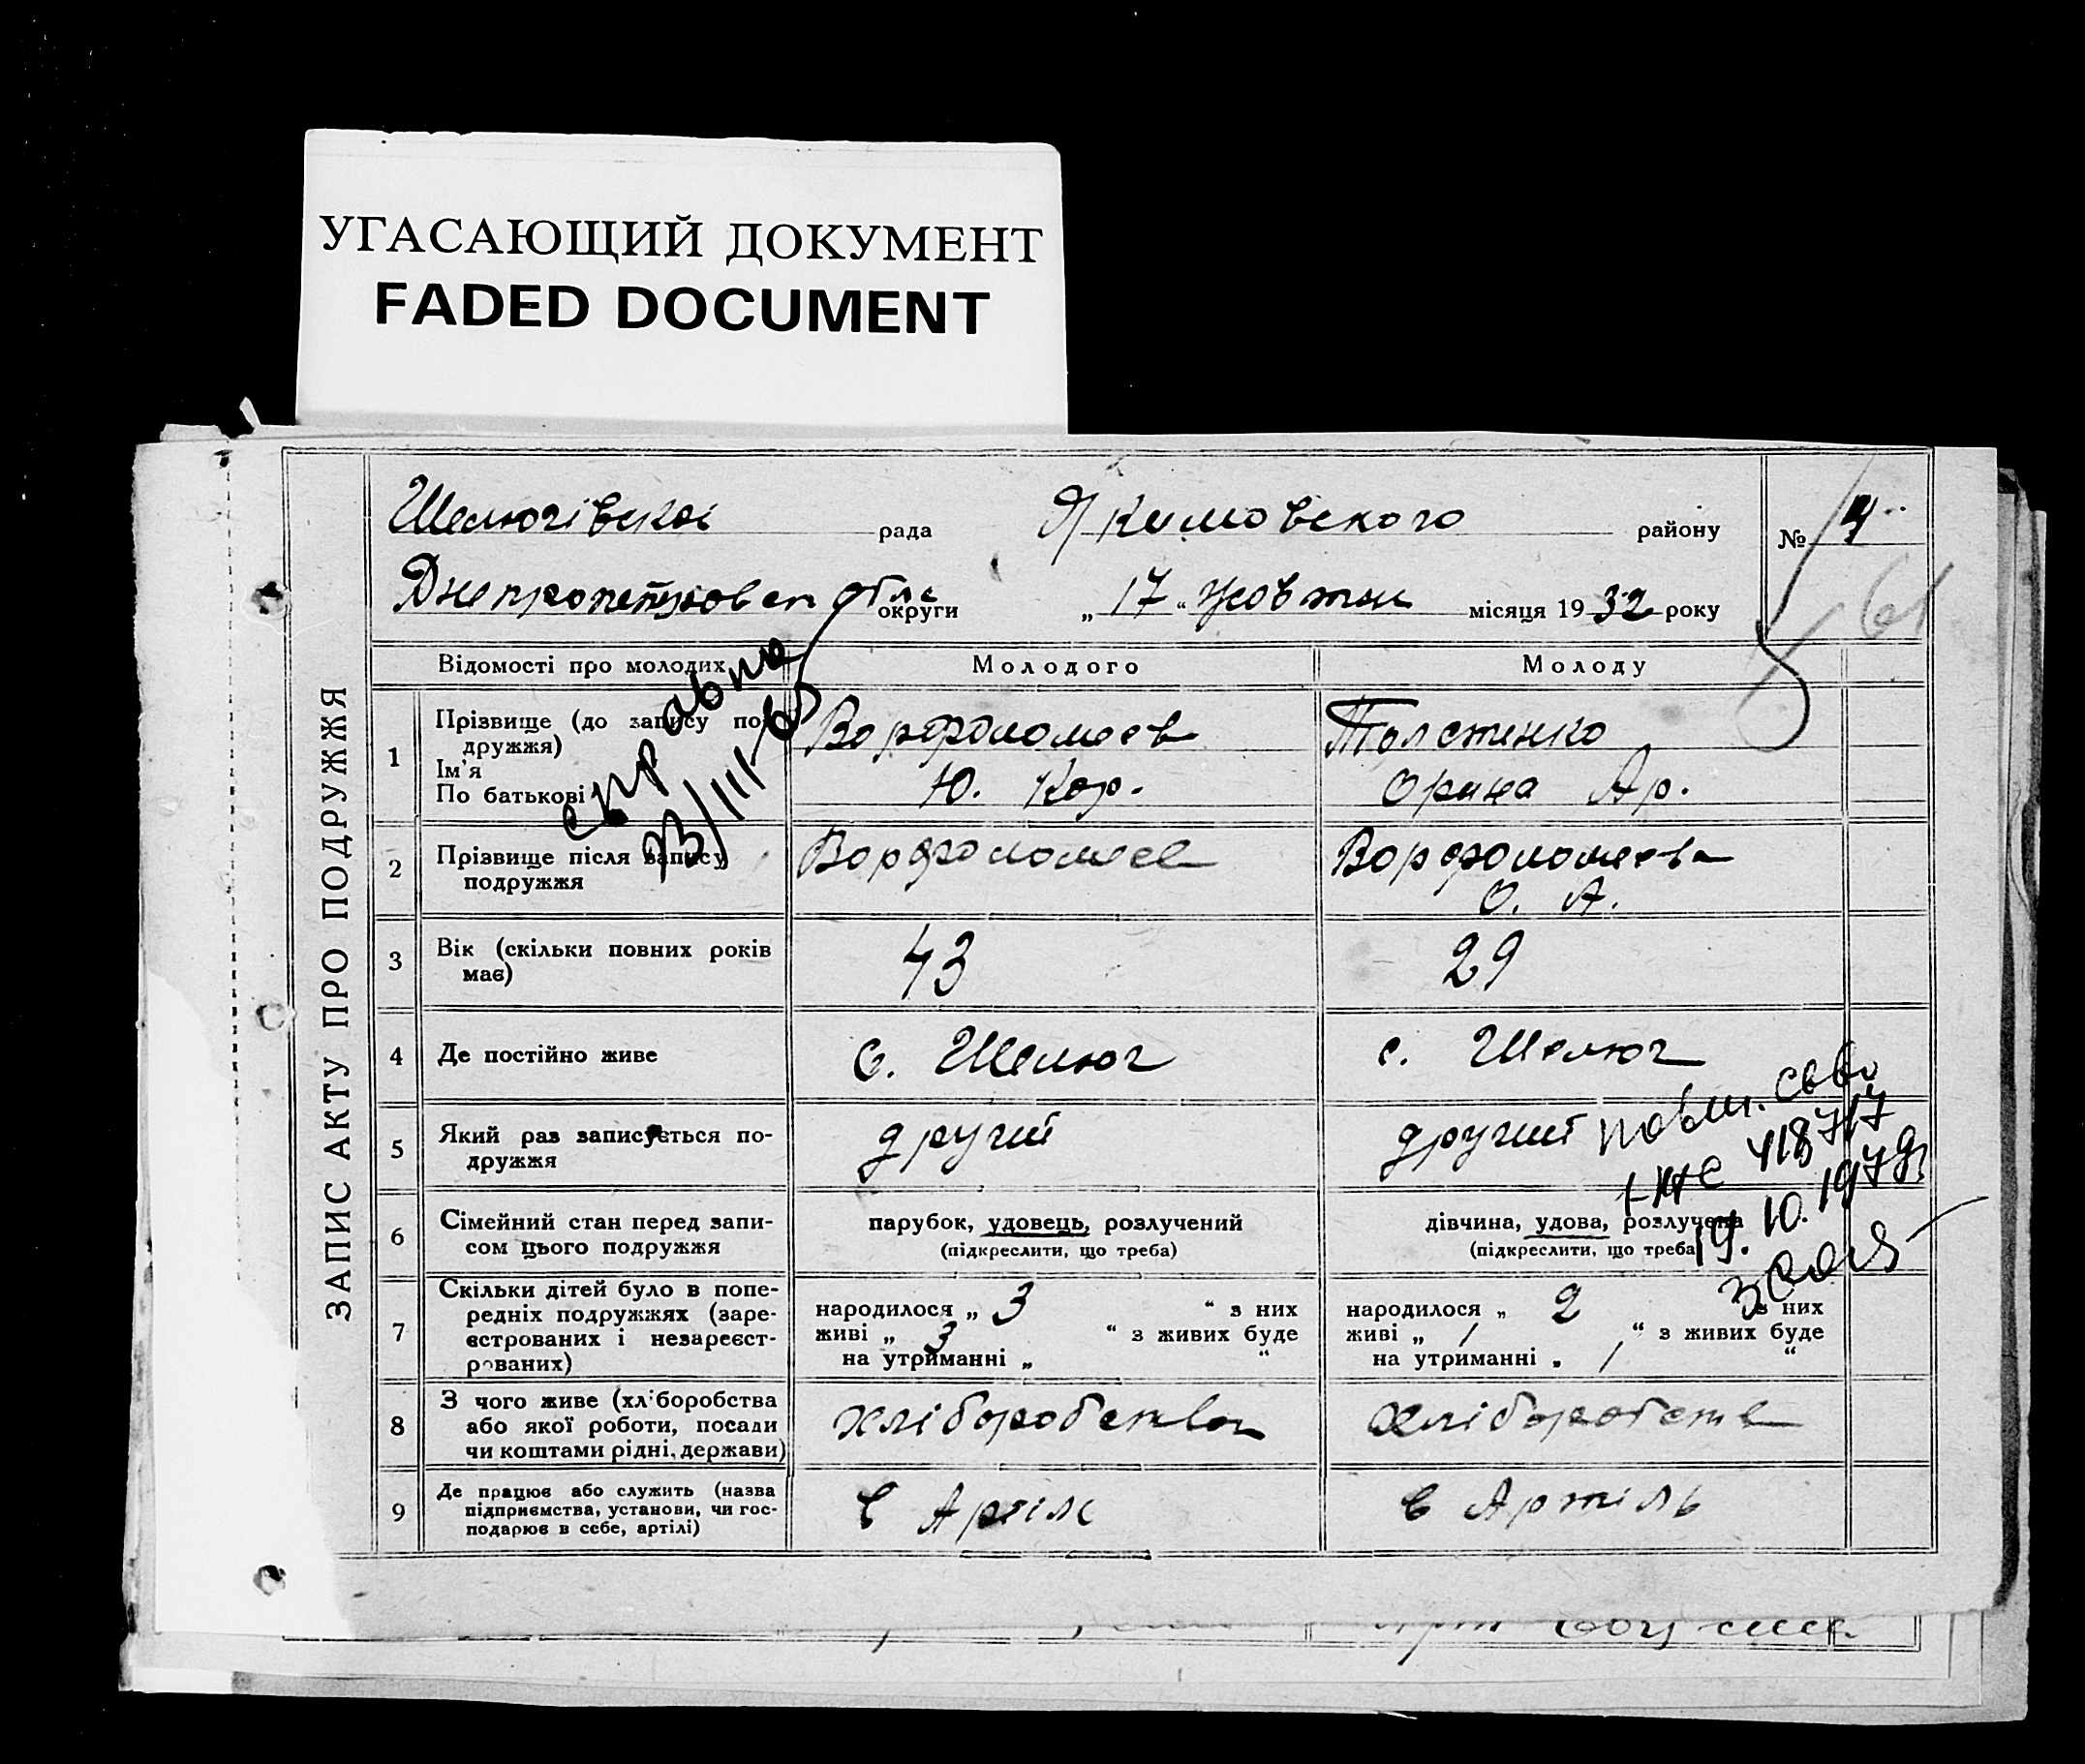 УГАСАЮЩИЙ ДОКУМЕНТ
FADED DOCUMENT
ЗАПИС АКТУ ПРО ПОДРУЖЖЯ
Шелюгівская рада Якимовского району № 4
Днепропетровск обл округи „17“ Жовтня місяця 1932 року
61
Відомості про молодих Молодого Молоду
справка
23/III-65
1 Прізвище (до запису по-
дружжя)
Ім'я
По батькові
Ворфоломеев
Ю. Кор.
Толстенко
Орина Ар.
2 Прізвище після запису
подружжя
Ворфоломеев
Ворфоломеева
О. А.
3 Вік (скільки повних років
має)
43
29
4 Де постійно живе
с. Шелюг
с. Шелюг
5 Який раз записується по-
дружжя
другий
другий
повт. св-во
418717
19.10.1979г.
6 Сімейний стан перед запи-
сом цього подружжя
парубок, удовець, розлучений
(підкреслити, що треба)
дівчина, удова, розлучена
(підкреслити, що треба
7 Скільки дітей було в попе-
редніх подружжях (заре-
єстрованих і незареєст-
рованих)
народилося „ 3 “ з них
живі „ 3 “ з живих буде
на утриманні „ “
народилося „ 2 з них
живі „ 1 “ з живих буде
на утриманні „ 1 “
8 З чого живе (хліборобства
або якої роботи, посади
чи коштами рідні, держави)
хліборобства
хліборобств
9 Де працює або служить (назва
підприємства, установи, чи гос-
подарює в себе, артілі)
в Артіль
в Артіль